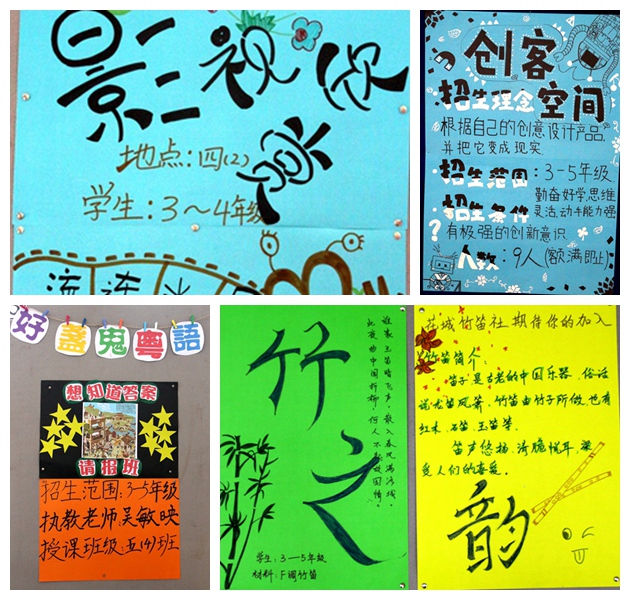 影视欣赏
地点:四(2)
学生:3~4年级
创客
空间
招生理念
根据自己的创意设计产品,
并把它变成现实.
招生范围:3-5年级
招生条件
勤奋好学,思维
灵活,动手能力强
有极强的创新意识
人数:9人(额满即止)
好盏鬼粤語
想知道答案
请报班
招生范围:3-5年级
执教老师吴敏映
授课班级:五(4)班
竹之
谁家玉笛暗飞声,散入春风满洛城。
此夜曲中闻折柳,何人不起故园情。
学生:3—5年级
材料:F调竹笛
在城竹笛社期待你的加入
竹笛简介:
笛子是古老的中国乐器,俗话
说龙笛凤箫,竹笛由竹子所做,也有
红木,石笛,玉笛等.
笛声悠扬,清脆悦耳,深
受人们的喜爱。
韵